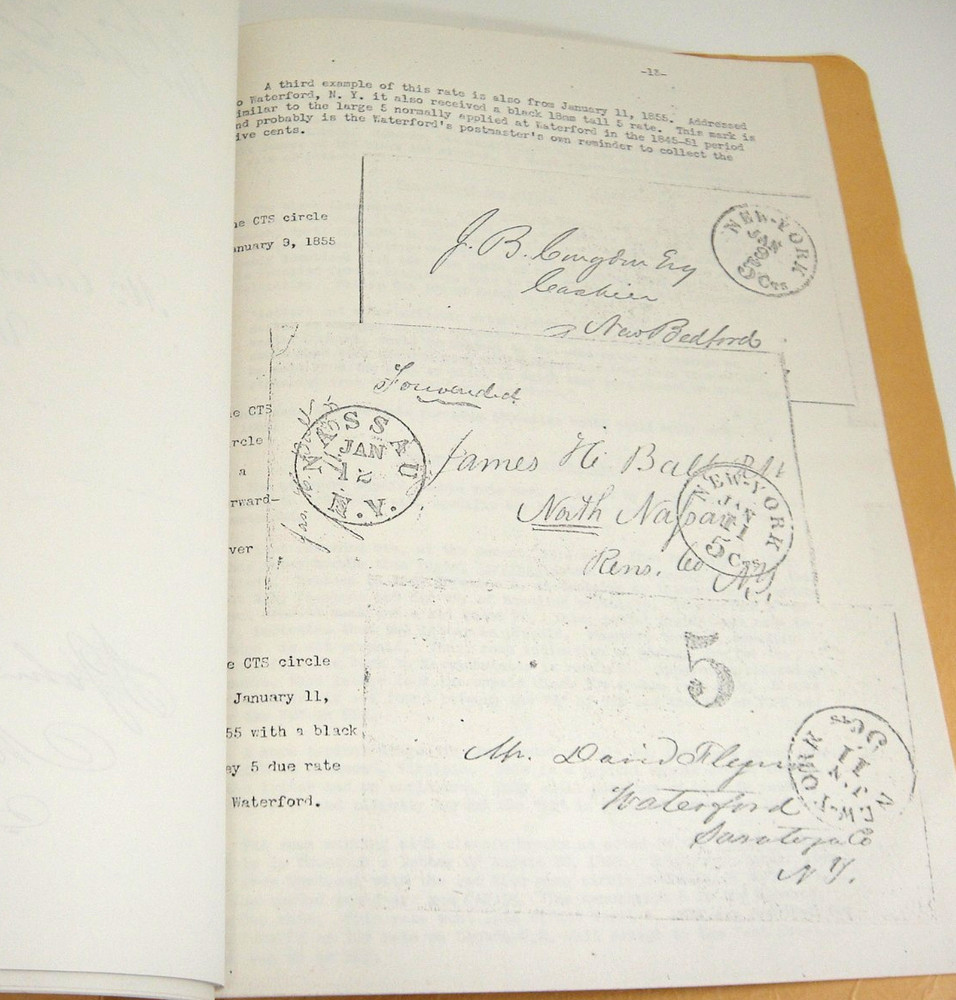 -13-
A third example of this rate is also from January 11, 1855. Addressed
o Waterford, N. Y. it also received a black 18mm tall 5 rate. This mark is
imilar to the large 5 normally applied at Waterford in the 1845-51 period
nd probably is the Waterford's postmaster's own reminder to collect the
ive cents.
e CTS circle
anuary 9, 1855
NEW-YORK
JAN
9
5 Cts
J. B. Congdon Esq
Cashier
New Bedford
e CTS
rcle
a
rward-
ver
Forwarded
NASSAU
JAN
12
N.Y.
James H.
North Nassau
Rens. Co
N.Y.
NEW-YORK
JAN
11
5 Cts
e CTS circle
January 11,
55 with a black
ey 5 due rate
Waterford.
5
Mr. David Flynn
Waterford
Saratoga Co
N Y.
NEW-YORK
JAN
11
5 Cts